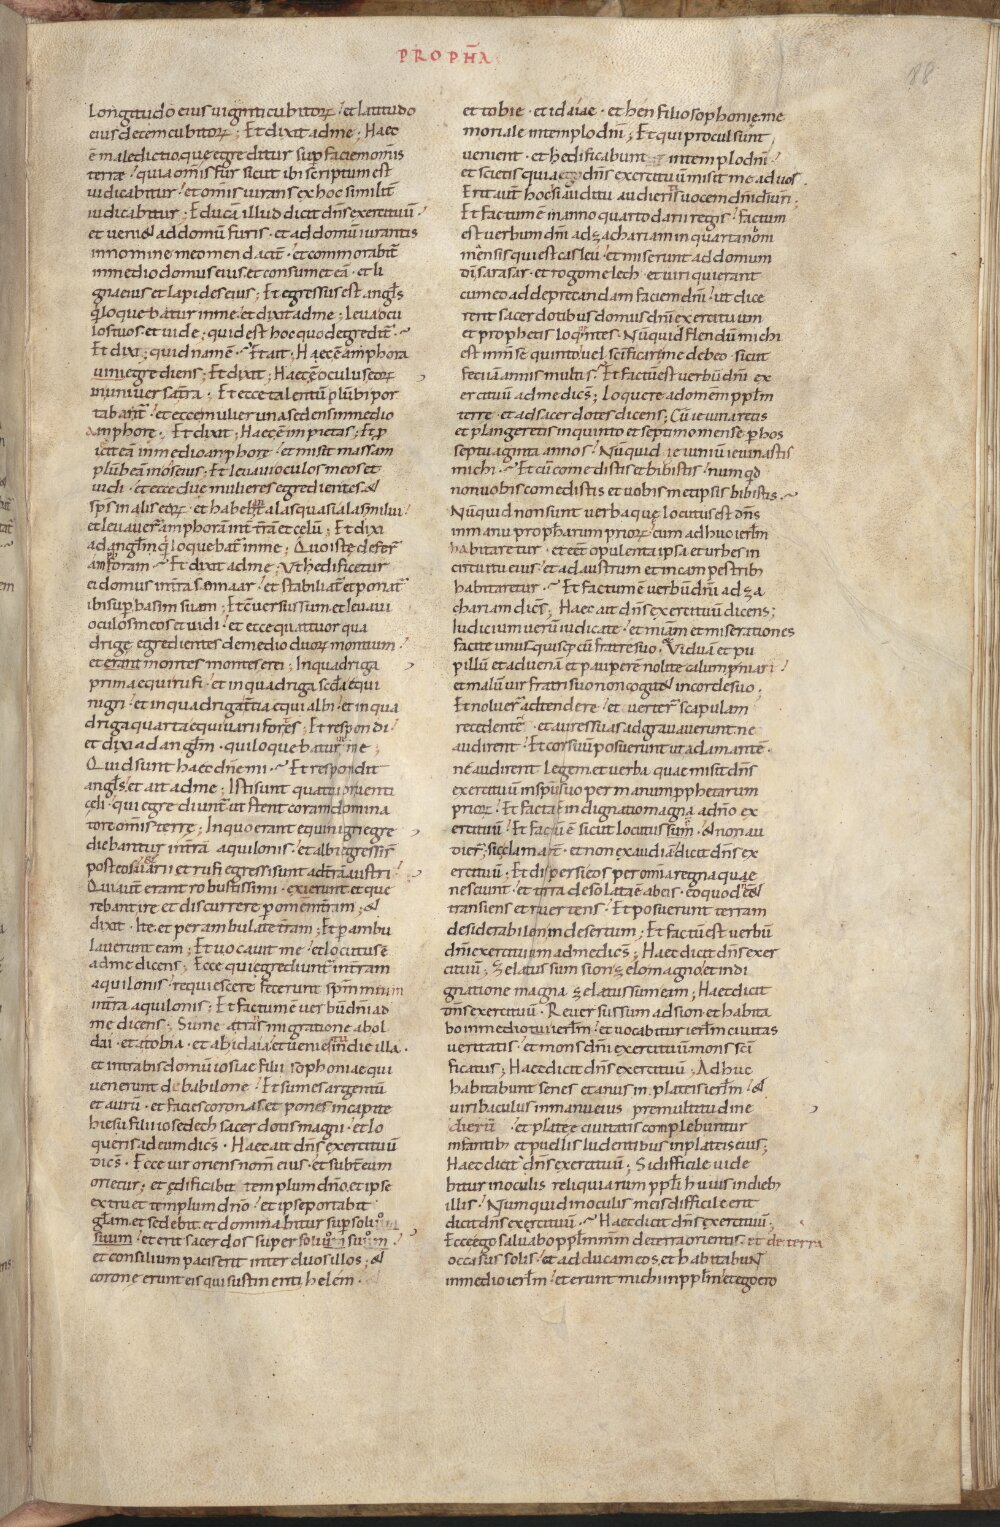 PROPHA
88
longitudo eius uiginti cubitorꝝ · et latitudo
eius decem cubitorꝝ ; Et dixit ad me ; Haec
ē maledictio que egreditur sup̄ faciem omnis
terrae · quia om̄is fur sicut ibi scriptum est
iudicabitur · et omnis iurans ex hoc similit̄
iudicabitur ; Educā illud dicit dn̄s exercituū ·
et ueniet ad domū furis · et ad domū iurantis
in nomine meo mendacit̄ · et commorabit̄
in medio domus eius · et consumet eā · et li
gna eius et lapides eius ; Et egressus est angl̄s
q̄ loquebatur in me · et dixit ad me ; Leua ocu
los tuos et uide · quid est hoc quod egredit̄ ·
Et dixi ; quidnam ē · Et ait ; Haec ē amphora
una egrediens ; Et dixit ; Haec ē oculus eorꝝ
in uniuersa tr̄ra · Et ecce talentū plūbi por
tabat̄ · et ecce mulier una sedens in medio
amphore ; Et dixit ; Haec ē impietas ; Et p̄
iecit eā in medio amphore · et misit massam
plūbeā in os eius ; Et leuaui oculos meos et
uidi · et ecce due mulieres egredientes &
sp̄s in alis eorꝝ · et habebant alas quasi alas milui
et leuauer̄ amphorā int̄ tr̄ā et celū ; Et dixi
ad angl̄m q̄ loquebat̄ in me ; Quo iste defer̄
amforam · Et dixit ad me ; Ut hedificetur
ei domus in tr̄a sennaar · et stabiliat̄ et ponat̄
ibi sup̄ basim suam ; Et cōuersus sum et leuaui
oculos meos et uidi · et ecce quattuor qua
drige egredientes de medio duorꝝ montium ·
et erant montes montes erei ; In quadriga
prima equi rufi · et in quadriga sc̄da equi
nigri · et in quadriga t̄tia equi albi · et in qua
driga quarta equi uarii fortes ; Et respondi ·
et dixi ad angl̄m · qui loquebatur in me ;
Quid sunt haec dn̄e mi · Et respondit
angl̄s · et ait ad me ; Isti sunt quattuor uenti
celi · qui egrediunt̄ ut stent coram domina
tore om̄is terre ; In quo erant equi nigri egre
diebantur in tr̄ā aquilonis · et albi egressi s̄
post eos · uarii et rufi egressi sunt ad tr̄ā austri ·
Qui aūt erant robustissimi · exierunt et que
rebant ire et discurrere p̄ omēm tr̄am ; &
dixit · Ite · et perambulate tr̄am ; Et p̄ambu
lauerunt eam ; Et uocauit me · et locutus ē
ad me dicens ; Ecce qui egrediunt̄ in tr̄am
aquilonis · requiescere fecerunt sp̄m meum
in tr̄a aquilonis ; Et factum ē uerbū dn̄i ad
me dicens ; Sume a transmigratione ab ol
dai · et a tobia · et ab idaia · et uenies tu in die illa ·
et intrabis domū iosiae filii sophoniae qui
uenerunt de babilone · Et sumes argentū
et aurū · et facies coronas · et pones in capite
hiesu filii iosedech sacerdotis magni · et lo
queris ad eum dicēs · Haec ait dn̄s exercituū
dicēs · Ecce uir oriens nom̄ eius · et subt̄ eum
orietur ; et edificabit templum dn̄o · et ipse
extruet templum dn̄o · et ipse portabit
gl̄am · et sedebit et dominabitur sup̄ soliū
suum · et erit sacerdos super soliū suūm ·
et consilium pacis erit inter duos illos ; &
corone erunt eis qui sustinenti helem ·
et tobie · et idaiae · et hen filio sophonie me
moriale in templo dn̄i ; Et qui procul sunt
uenient · et hedificabunt in templo dn̄i ·
et scietis quia dn̄s exercituum misit me ad uos ·
Erit aūt hoc si auditu audieritis uocem dn̄i dī uri ·
Et factum ē in anno quarto darii regis · factum
est uerbum dn̄i ad zachariam in quarta nom
mensis qui est casleu · et miserunt ad domum
dī sarasar · et rogomelech · et uiri qui erant
cum eo ad deprecandam faciem dn̄i · ut dice
rent sacerdotibus domus dn̄i exercituum
et prophetis loquentes · Nūquid flendū michi
est in m̄se quinto · uel sc̄ificari me debeo · sicut
feci iam annis multis · Et factū est uerbū dn̄i ex
ercituū ad me dicēs ; Loquere ad omēm ppl̄m
terre · et ad sacerdotes dicens ; Cū ieiunaretis
et plangeretis in quinto et septimo mense p̄ hos
septuaginta annos · Nūquid ieiuniū ieiunastis
michi · Et cū comedistis et bibistis · numqd
non uobis comedistis et uobismetipsis bibistis ·
Nūquid non sunt uerba quę locutus est dn̄s
in manu proph̄arum priorꝝ · cum adhuc ierl̄m
habitaretur · et eēt opulenta ipsa et urbes in
circuitu eius · et ad austrum et in campestrib;
habitaretur · Et factum ē uerbū dn̄i ad za
chariam dicēs ; Haec ait dn̄s exercituū dicens ;
Iudicium uerū iudicate · et miam̄ et miserationes
facite unusquisque cū fratre suo · Viduā et pu
pillū et aduenā et pauperē nolite calumpniari ·
et malū uir fratri suo non cogitet in corde suo ;
Et noluer̄ adtendere · et uerter̄ scapulam
recedentē · et aures suas adgrauauerunt ne
audirent · Et cor suū posuerunt ut adamantē ·
ne audirent legem et uerba quae misit dn̄s
exercituū in sp̄u suo per manum pphetarum
priorꝝ · Et facta ē indignatio magna a dn̄o ex
ercituū · Et factū ē sicut locutus sum · & non au
dier̄ ; sic clamab̄t · et non exaudiā dicit dn̄s ex
ercituū · Et dispersi eos per omia regna quae
nesciunt · et terra desolata ē ab eis · eo quod eēt
transiens et reuertens · Et posuerunt terram
desiderabilem in desertum ; Et factū est uerbū
dn̄i exercituum ad me dicēs ; Haec dicit dn̄s exer
cituū ; Zelatus sum sion zelo magno · et indi
gnatione magna zelatus sum eam ; Haec dicit
dn̄s exercituū · Reuersus sum ad sion et habita
bo in medio tui ierl̄m · et uocabitur ierl̄m ciuitas
ueritatis · et mons dn̄i exercituū mons sc̄i
ficatus ; Haec dicit dn̄s exercituū ; Adhuc
habitabunt senes et anus in plateis ierl̄m · &
uiri baculus in manu eius pre multitudine
dierū · et platee ciuitatis complebuntur
infantib; et puellis ludentibus in plateis eius ;
Haec dicit dn̄s exercituū ; Si difficile uide
bitur in oculis reliquiarum ppl̄i huius in dieb;
illis · Numquid in oculis meis difficile erit
dicit dn̄s exercituū · Haec dicit dn̄s exercituū ;
Ecce ego saluabo ppl̄m m̄m de terra orientis · et de terra
occasus solis · et adducam eos · et habitabunt
in medio ierl̄m · et erunt michi in ppl̄m · et ego ero